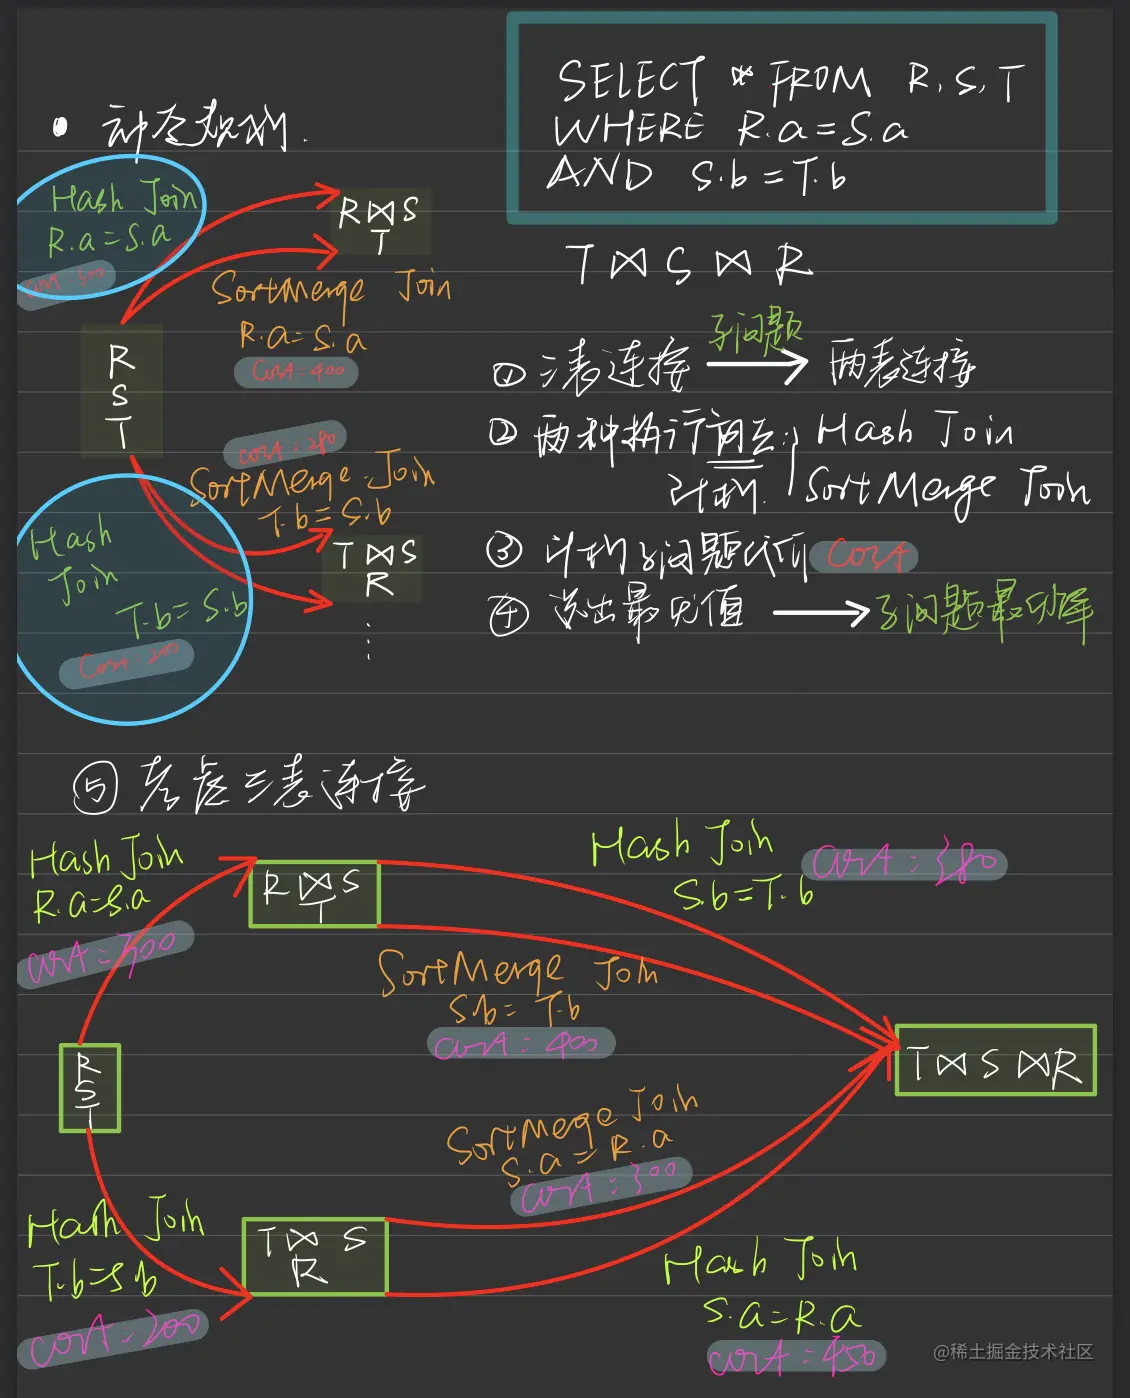 SELECT * FROM R, S, T
WHERE R.a=S.a
AND S.b=T.b
• 动态规划.
Hash Join
R.a=S.a
R⋈S
T
SortMerge Join
R.a=S.a
cost=400
R
S
T
cost:280
SortMerge Join
T.b=S.b
Hash
Join
T.b=S.b
cost 200
T⋈S
R
⋮
T⋈S⋈R
① 三表连接 子问题 → 两表连接
② 两种执行
计划. Hash Join
SortMerge Join
③ 计划子问题代价 cost
④ 选出最优值 → 子问题最优解
⑤ 考虑三表连接
Hash Join
R.a=S.a
cost=300
R⋈S
T
Hash Join
S.b=T.b
cost:380
SortMerge Join
S.b=T.b
cost:400
R
S
T
T⋈S⋈R
SortMerge Join
S.a=R.a
cost:300
Hash Join
T.b=S.b
cost:200
T⋈S
R
Hash Join
S.a=R.a
cost:450
@稀土掘金技术社区